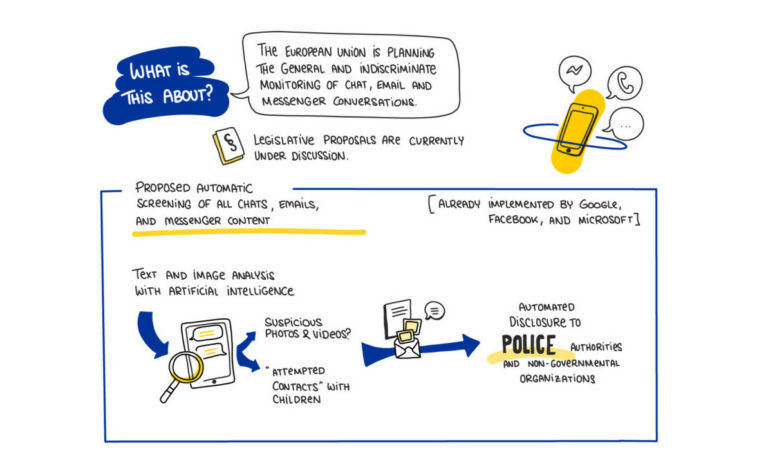 WHAT IS
THIS ABOUT?
THE EUROPEAN UNION IS PLANNING
THE GENERAL AND INDISCRIMINATE
MONITORING OF CHAT, EMAIL AND
MESSENGER CONVERSATIONS.
§
LEGISLATIVE PROPOSALS ARE CURRENTLY
UNDER DISCUSSION.
PROPOSED AUTOMATIC
SCREENING OF ALL CHATS, EMAILS,
AND MESSENGER CONTENT
[ALREADY IMPLEMENTED BY GOOGLE,
FACEBOOK, AND MICROSOFT]
TEXT AND IMAGE ANALYSIS
WITH ARTIFICIAL INTELLIGENCE
SUSPICIOUS
PHOTOS & VIDEOS?
"ATTEMPTED
CONTACTS" WITH
CHILDREN
AUTOMATED
DISCLOSURE TO
POLICE AUTHORITIES
AND NON-GOVERNMENTAL
ORGANIZATIONS